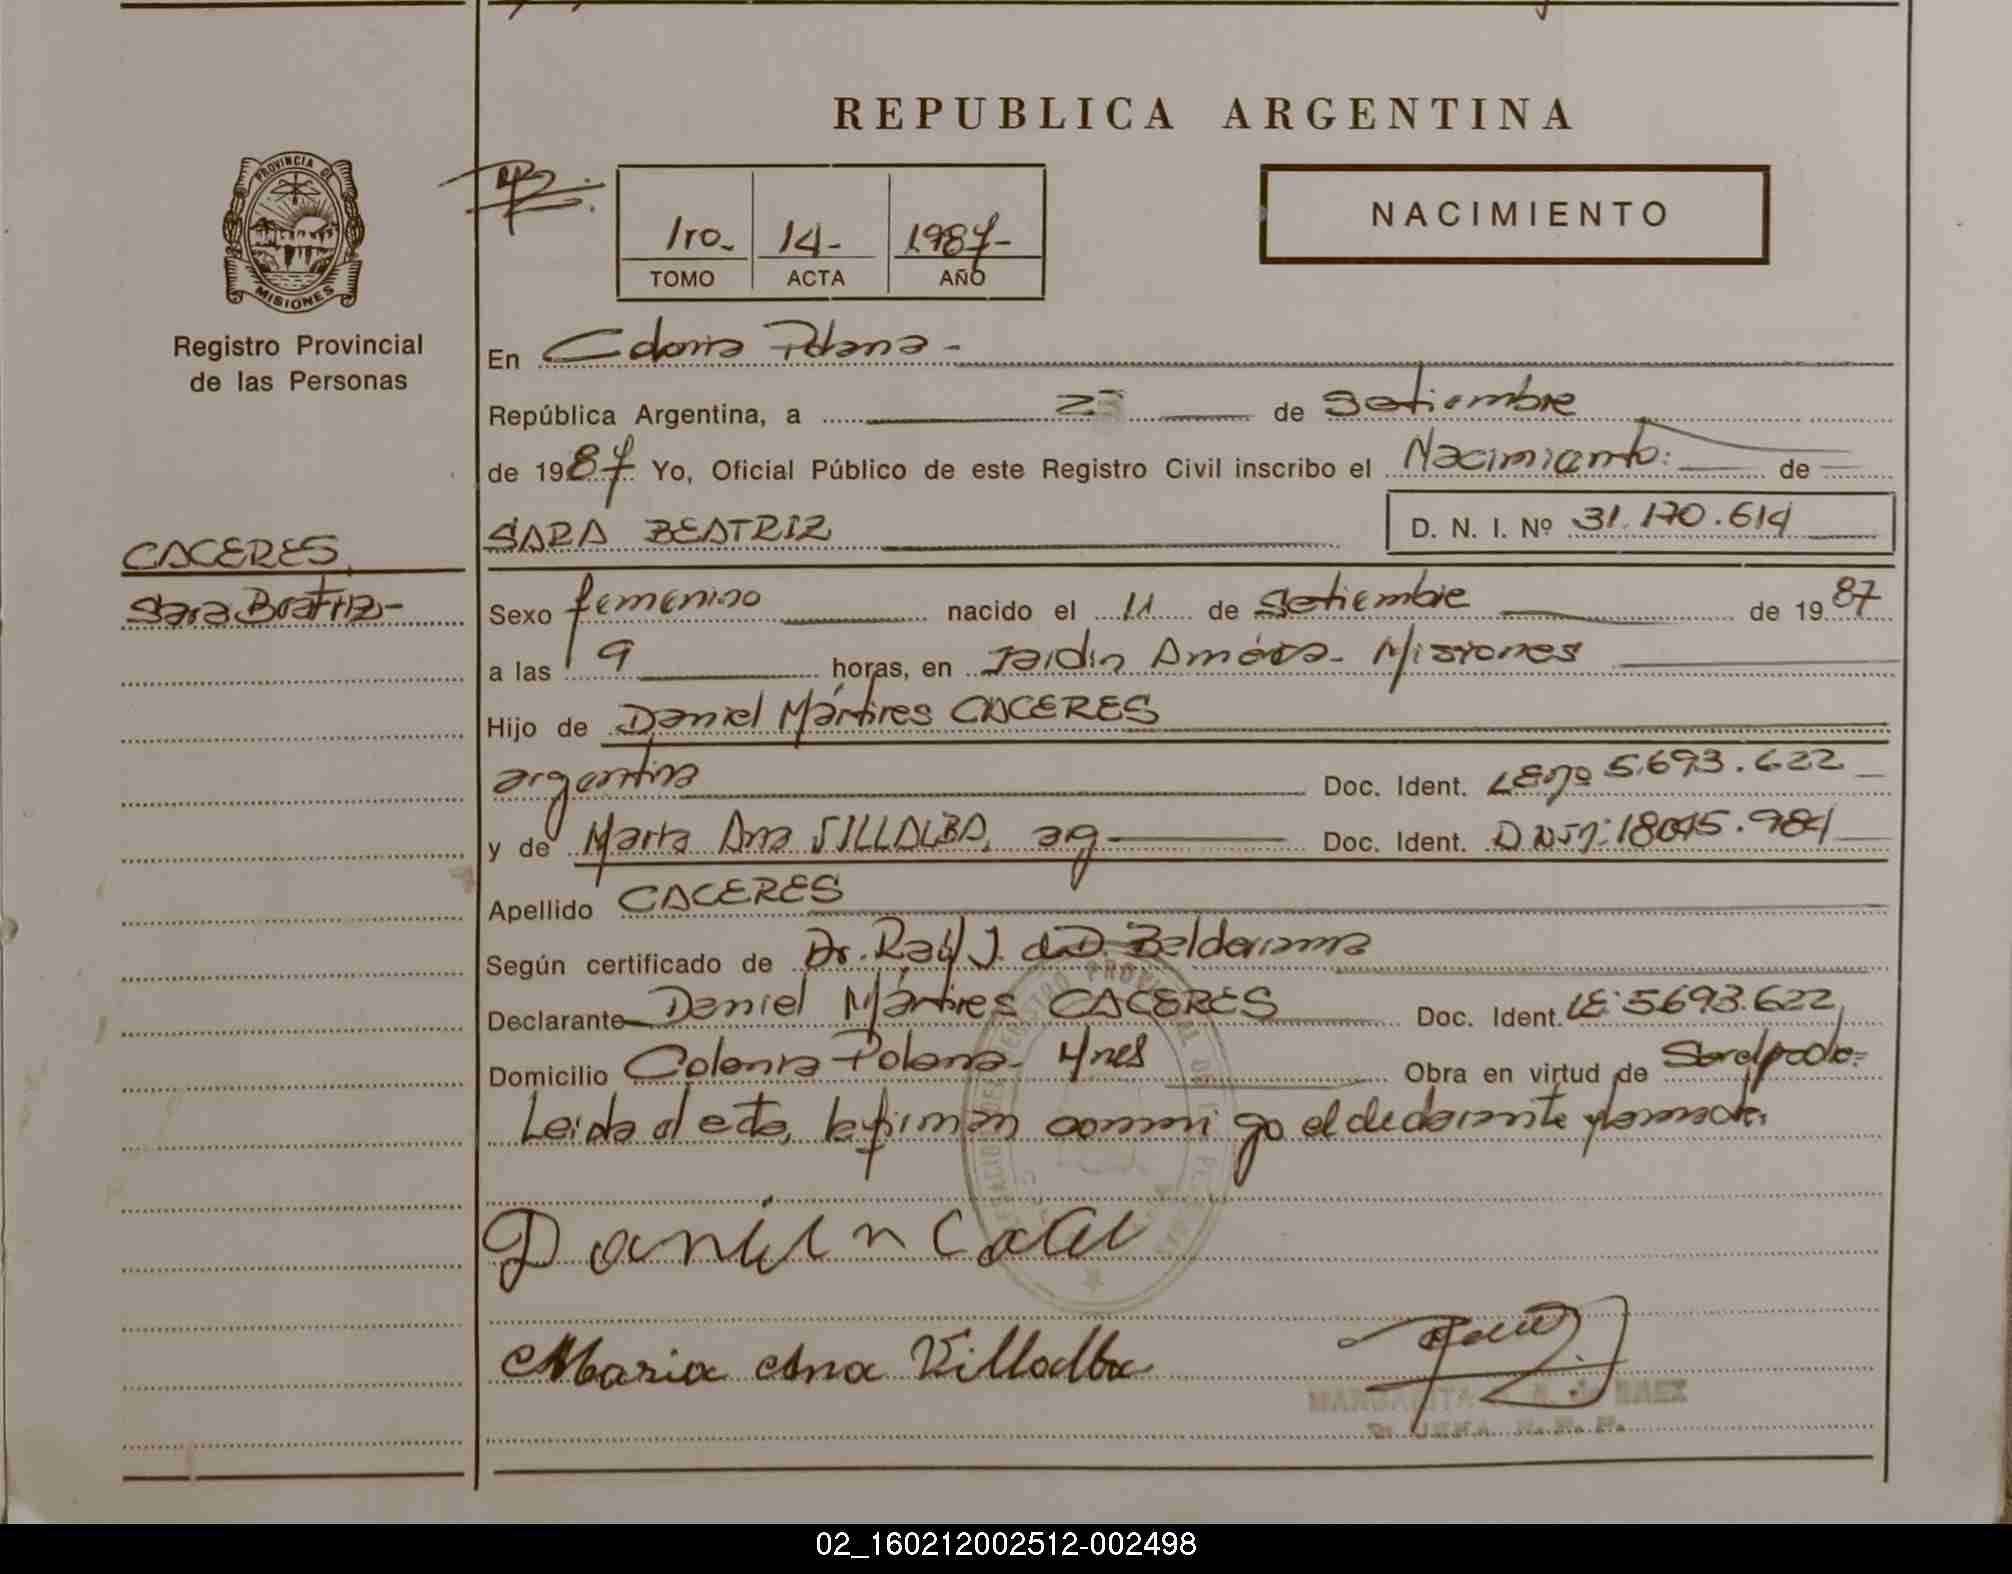 REPUBLICA ARGENTINA
NACIMIENTO
PROVINCIA DE
MISIONES
Registro Provincial
de las Personas
1ro- 14- 1987-
TOMO ACTA AÑO
En Colonia Polana-
República Argentina, a 23 de Setiembre
de 1987 Yo, Oficial Público de este Registro Civil inscribo el Nacimiento: de
SARA BEATRIZ
D. N. I. Nº 31.170.614
CACERES
Sara Beatriz-
Sexo femenino nacido el 11 de Setiembre de 1987
a las 9 horas, en Jardín América- Misiones
Hijo de Daniel Mártires CACERES
argentina Doc. Ident. LEnº 5.693.622
y de Marta Ana VILLALBA, arg Doc. Ident. 18045.984
Apellido CACERES
Según certificado de Dr. Raúl J. Balderrama
Declarante Daniel Mártires CACERES Doc. Ident. LE: 5693.622
Domicilio Colonia Polana- Mnes Obra en virtud de
Leida el acta, la firman conmigo el declarante
Maria Ana Villalba
MARGARITA BAEZ
02_160212002512-002498